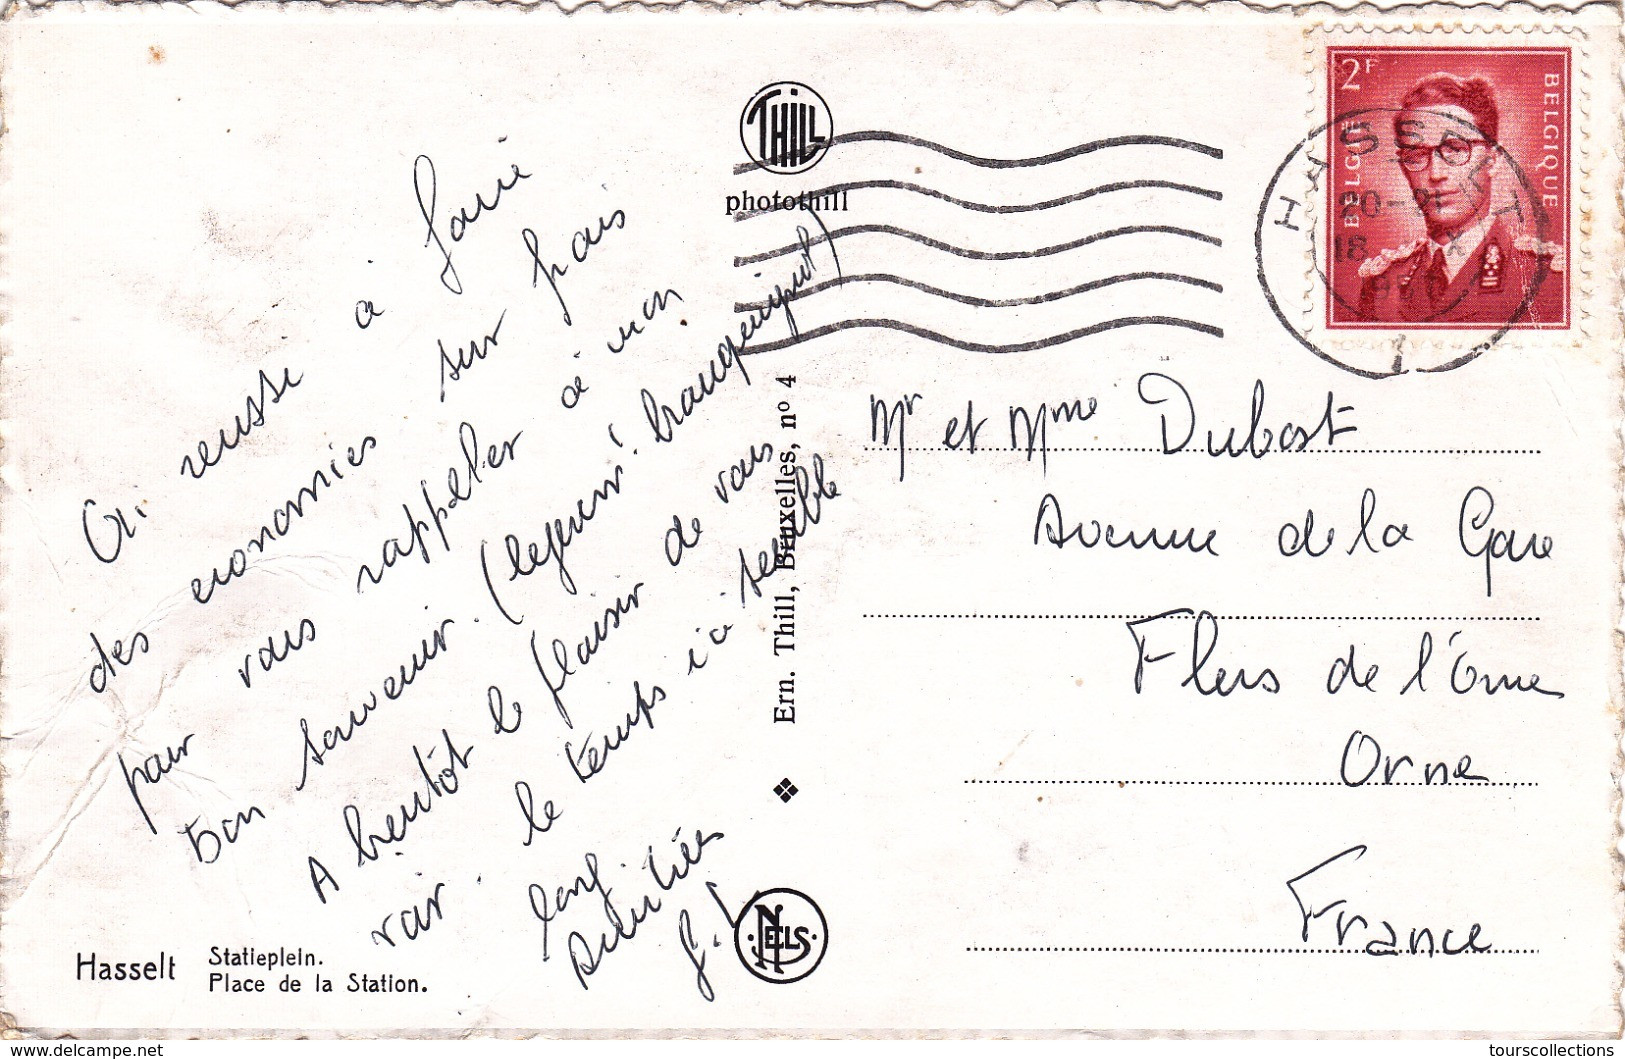 Ai reussi à faire
des economies sur frais
pour vous rappeler à mon
bon souvenir. (logement! tranquement)
A bientôt le plaisir de vous
voir. le temps ici semble
long
Amitiés
Hasselt
Statieplein.
Place de la Station.
THILL
photothill
Ern. Thill, Bruxelles, nº 4
NELS
2F
BELGIË
BELGIQUE
HASSELT
20-21
18 X
1
Mr et Mme Dubost
Avenue de la Gare
Flers de l'Orne
Orne
France
www.delcampe.net
tourscollections